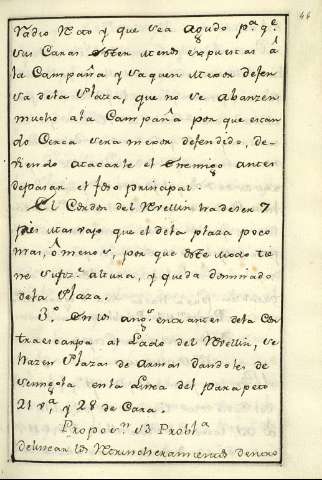 46
radio Recto y que sea agudo p.ª q.e
sus Caras esten menos expuestas á
la Campaña y saquen mexor defen
sa dela Plaza, que no se abanzen
mucho ala Campaña por que estan
do Cerca sera mexor defendido, de-
viendo atacarle el Enemigo antes
depasar el foso principal.
El Cordon del Revellin ha deser 7
pies mas vajo que el dela plaza poco
mas, ô menos, por que deste modo tie
ne sufiz.te altura, y queda dominado
dela Plaza.
3.º En los ang.s entrantes dela Con
traescarpa al Lado del Revellin, se
hazen Plazas de Armas dandoles de
semigola en la Linea del parapeto
21 v.s, y 28 de Cara.
Propos.n 33 Probl.a
delinear los Atrincheramientos dentro